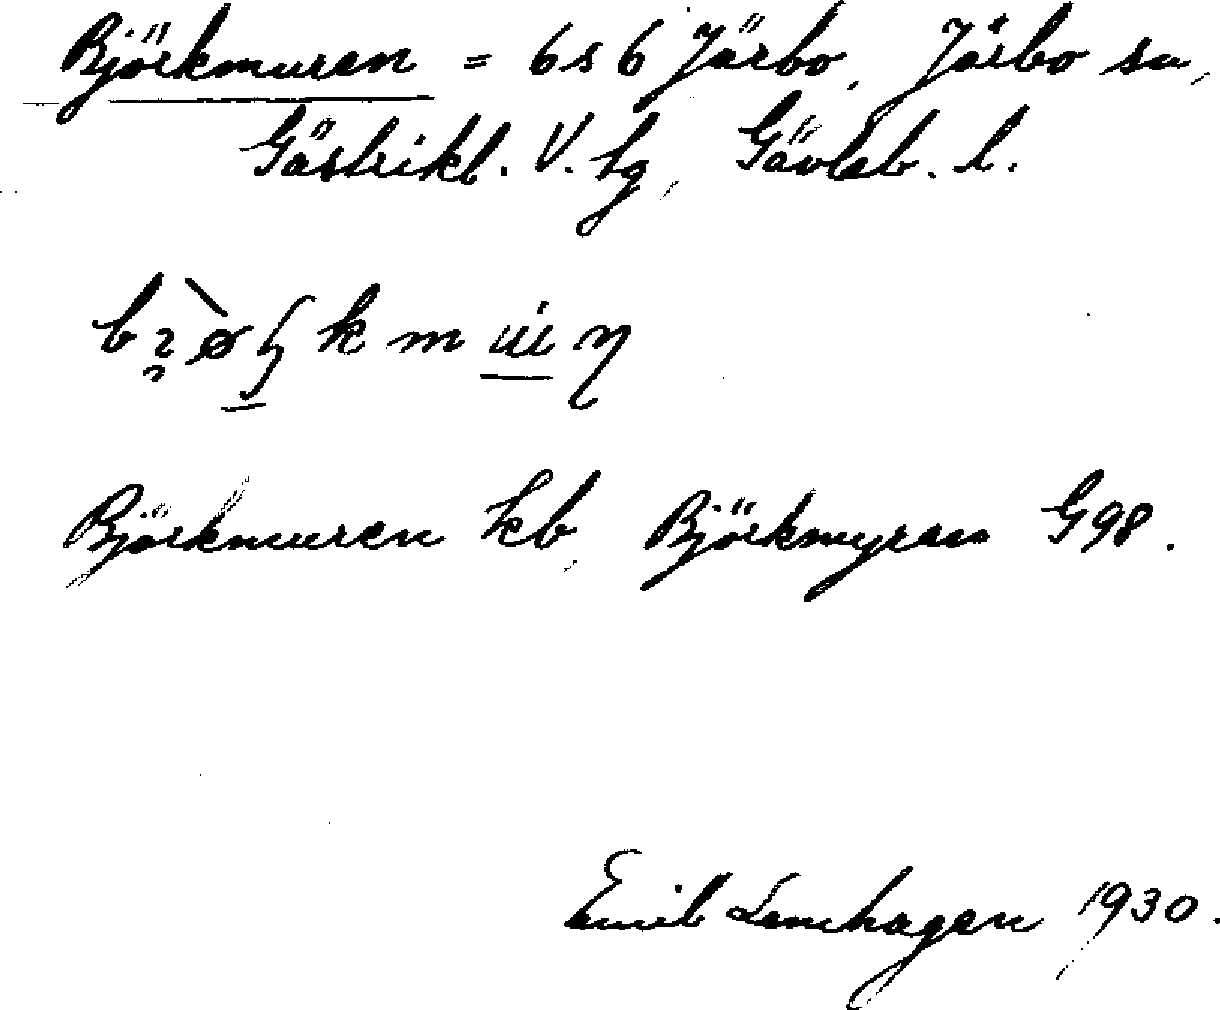 Björkmuren = 6s6 Järbo, Järbo sn,
Gästrikl. V. tg, Gävleb. l.
Björkmuren kb, Björkmyren G98.
Emil Lenhagen 1930.